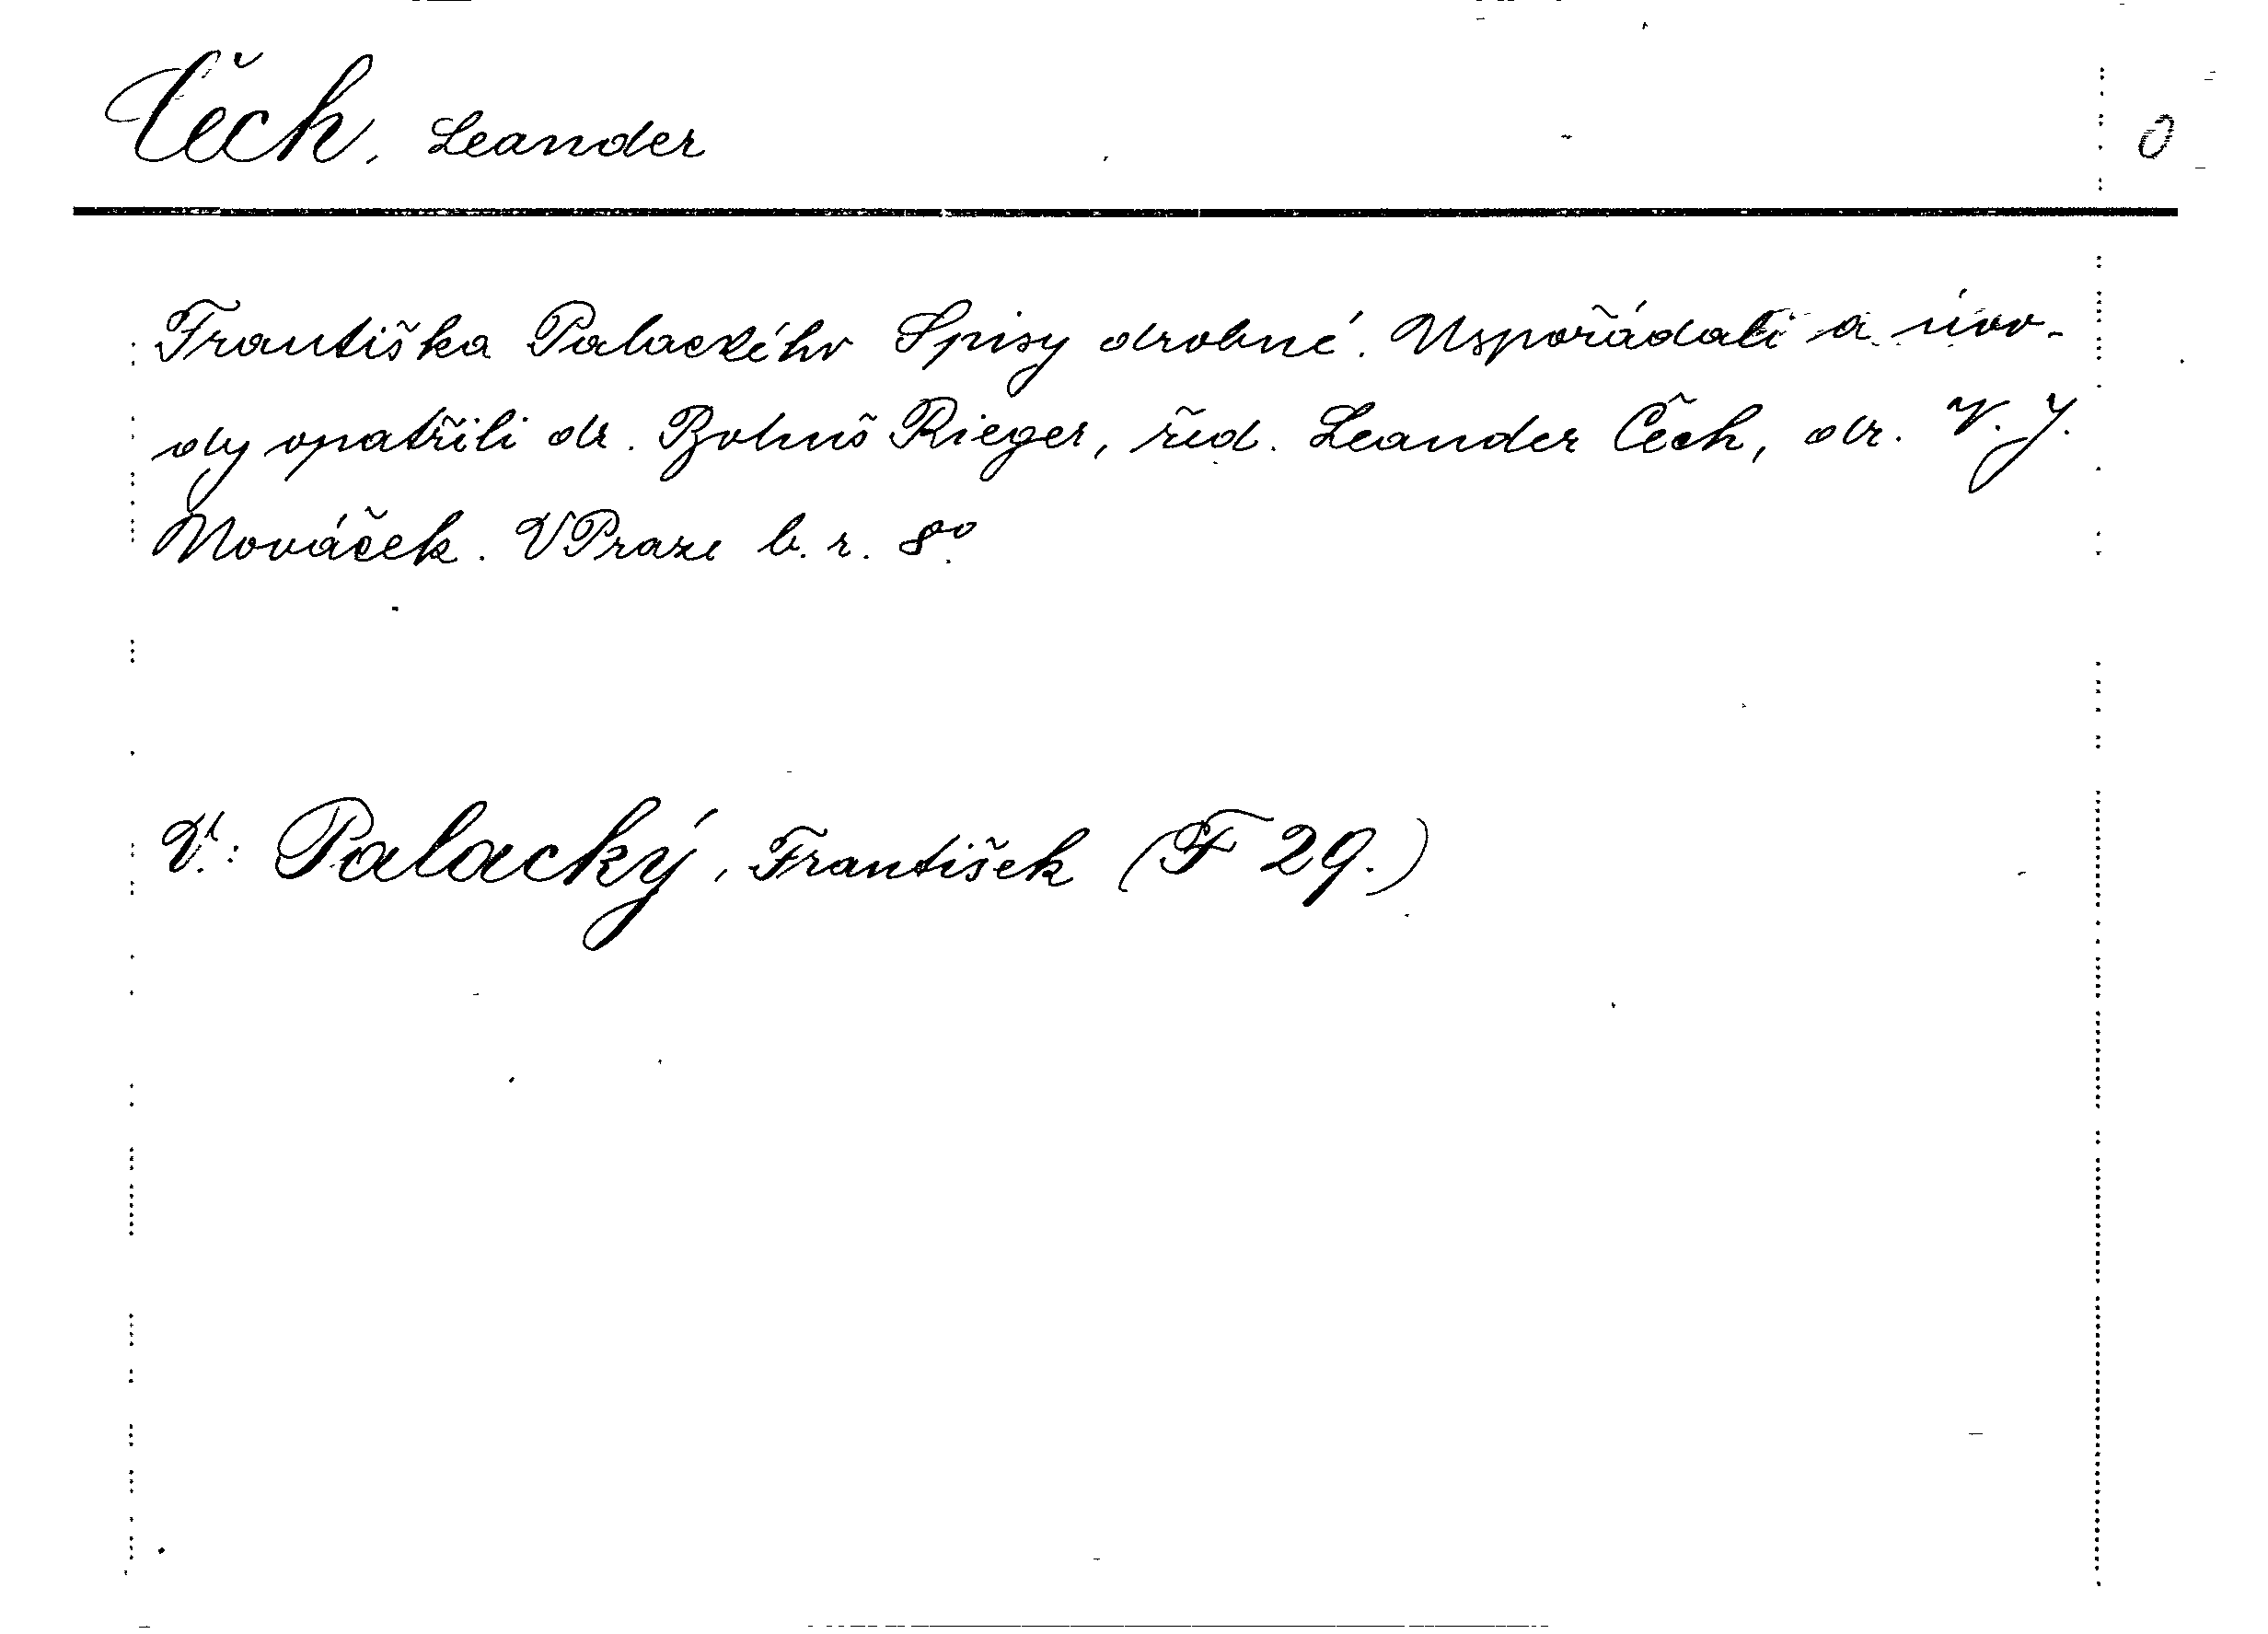 Čech, Leander O
Františka Palackého Spisy drobné. Uspořádali a úvo-
dy opatřili dr. Bohuš Rieger, řed. Leander Čech, dr. V. J.
Nováček. V Praze b. r. 8°.
V.: Palacký, František (F 29.)